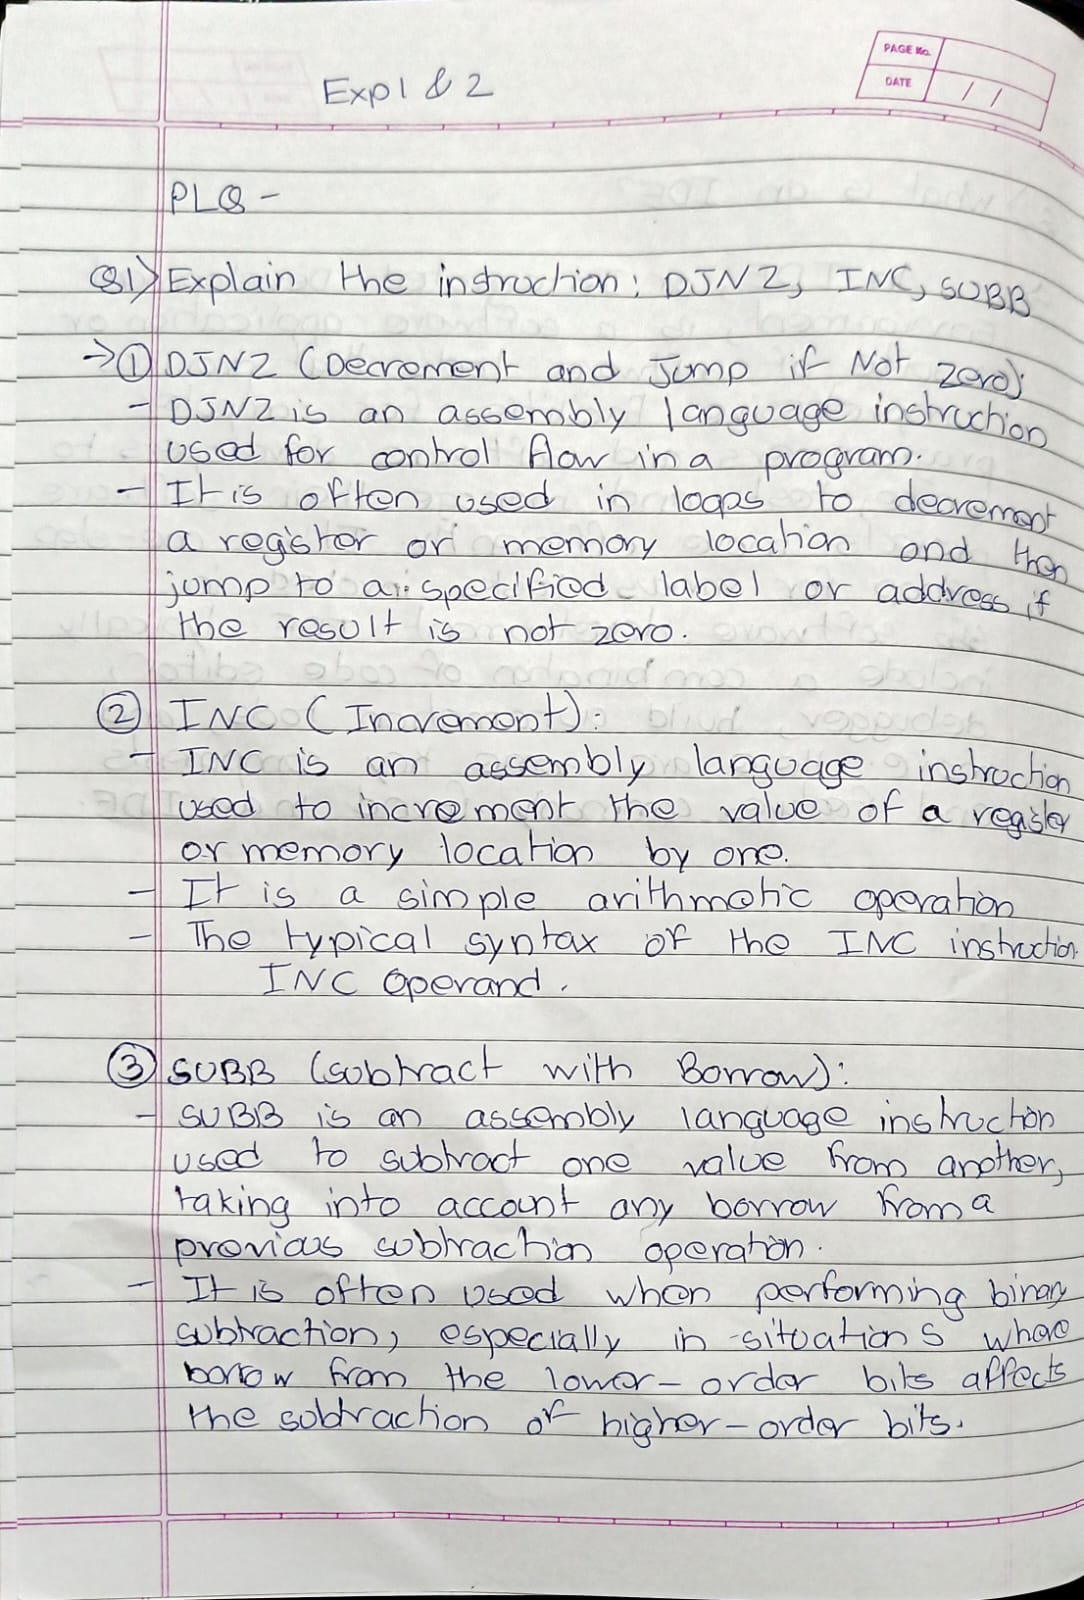 PAGE No.
DATE / /
Exp 1 & 2
PLQ -
Q1) Explain the instruction: DJNZ, INC, SUBB
→ ① DJNZ (Decrement and Jump if Not Zero):
- DJNZ is an assembly language instruction
used for control flow in a program.
- It is often used in loops to decrement
a register or memory location and then
jump to a specified label or address if
the result is not zero.
② INC (Increment):
- INC is an assembly language instruction
used to increment the value of a register
or memory location by one.
- It is a simple arithmetic operation
- The typical syntax of the INC instruction
INC operand.
③ SUBB (Subtract with Borrow):
- SUBB is an assembly language instruction
used to subtract one value from another,
taking into account any borrow from a
previous subtraction operation.
- It is often used when performing binary
subtraction, especially in situations where
borrow from the lower-order bits affects
the subtraction of higher-order bits.